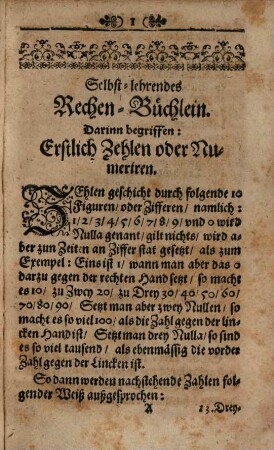 1
Selbst-lehrendes
Rechen-Büchlein.
Darinn begriffen:
Erstlich Zehlen oder Nu-
meriren.
ZEhlen geschicht durch folgende 10
Figuren/ oder Zifferen/ namlich:
1/ 2/ 3/ 4/ 5/ 6/ 7/ 8/ 9/ und 0 wird
Nulla genant/ gilt nichts/ wird a-
ber zun Zeiten an Ziffer stat gesetzt/ als zum
Exempel: Eins ist 1/ wann man aber das 0
darzu gegen der rechten Hand setzt/ so macht
es 10/ zu Zwey 20/ zu Drey 30/ 40/ 50/ 60/
70/ 80/ 90/ Setzt man aber zwey Nullen/ so
macht es so viel 100/ als die Zahl gegen der lin-
cken Hand ist/ Setzt man drey Nulla/ so sind
es so viel tausend/ als ebenmässig die vorder
Zahl gegen der Lincken ist.
So dann werden nachstehende Zahlen fol-
gender Weiß außgesprochen:
A 13. Drey-